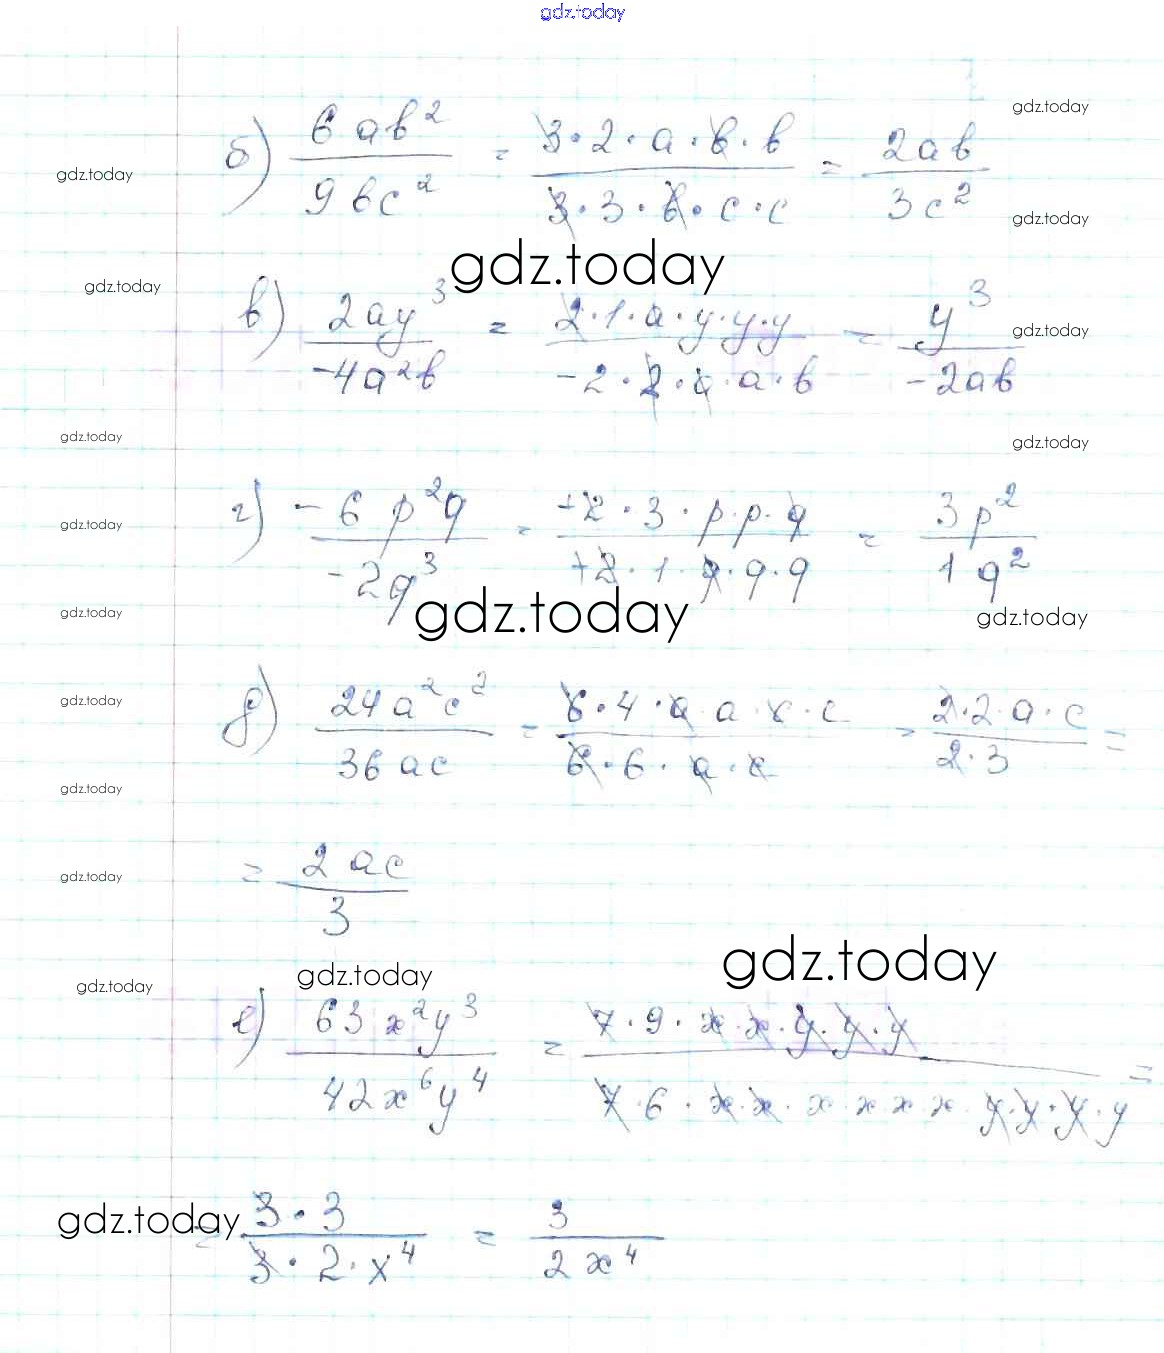 gdz.today
gdz.today
б) 6ab²/9bc² = 3·2·a·b·b/3·3·b·c·c = 2ab/3c²
gdz.today
gdz.today
gdz.today
gdz.today
в) 2ay³/-4a²b = 2·1·a·y·y·y/-2·2·a·a·b = y³/-2ab
gdz.today
gdz.today
gdz.today
г) -6p²q/-2q³ = +2·3·p·p·q/+2·1·q·q·q = 3p²/1q²
gdz.today
gdz.today
gdz.today
gdz.today
д) 24a²c²/36ac = 6·4·a·a·c·c/6·6·a·c = 2·2·a·c/2·3 =
gdz.today
gdz.today
= 2ac/3
gdz.today
gdz.today
gdz.today
gdz.today
е) 63x²y³/42x⁶y⁴ = 7·9·x·x·y·y·y/7·6·x·x·x·x·x·x·y·y·y·y =
gdz.today
= 3·3/3·2·x⁴ = 3/2x⁴